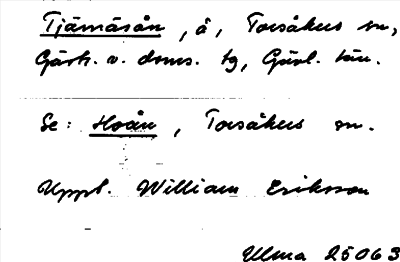 Tjämäsån, å, Torsåkers sn,
Gästr. v. doms. tg, Gävl. län.
Se: Hoån, Torsåkers sn.
Uppl. William Eriksson
Ulma 25063